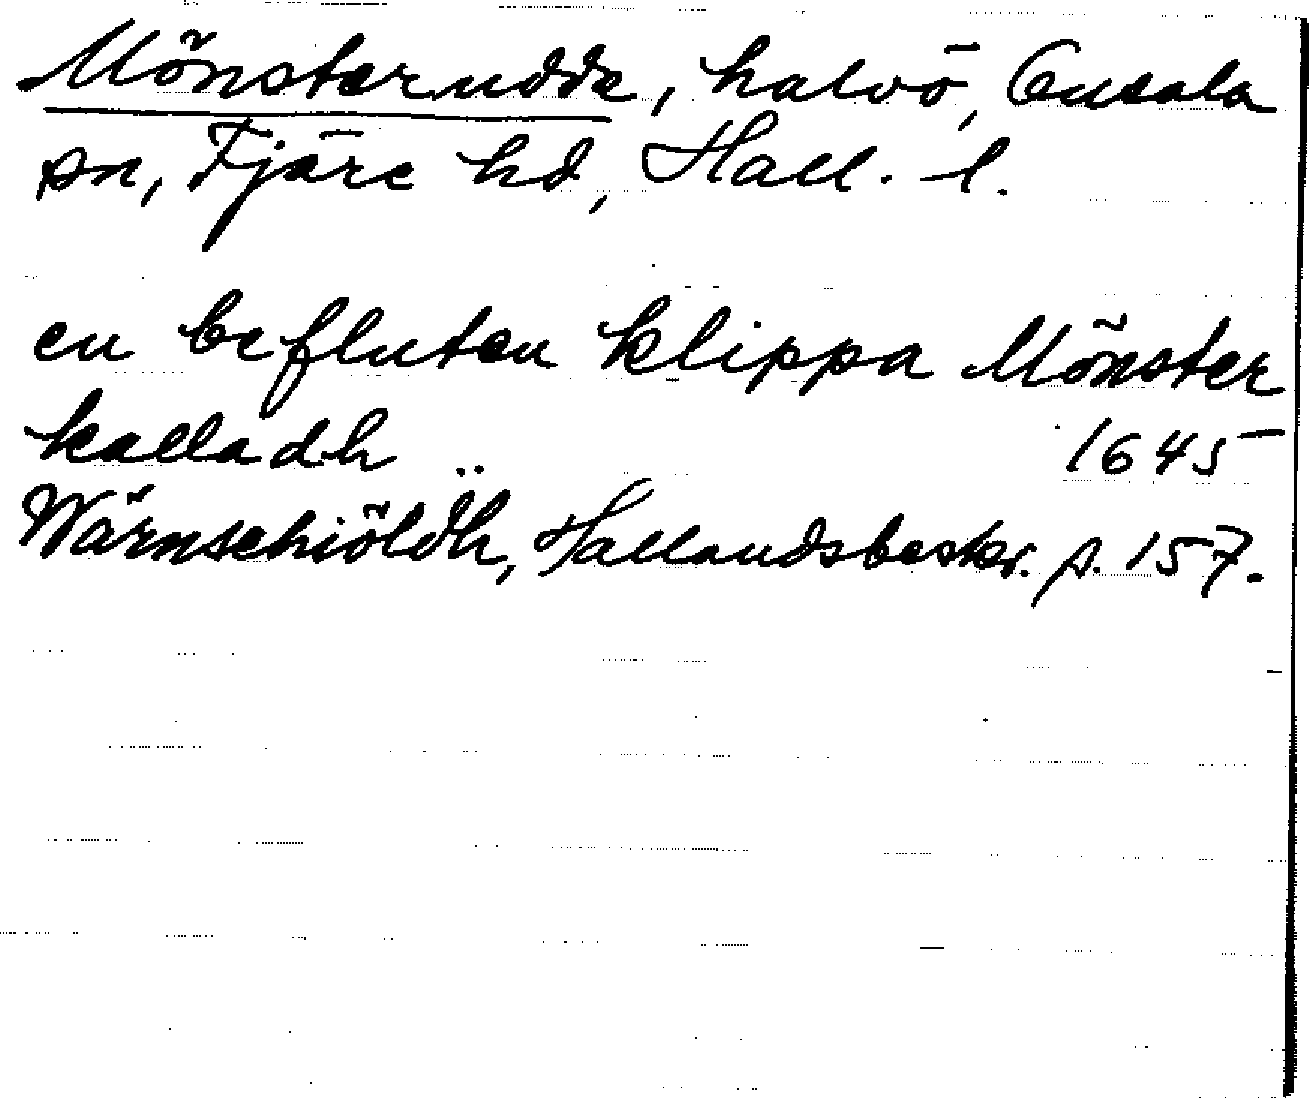 Mönsterudde, halvö, Onsala
sn, Fjäre hd, Hall. l.
en befluten klippa Mönster
kalladh 1645
Wärnschiöldh, Hallandsbeskr. s. 157.